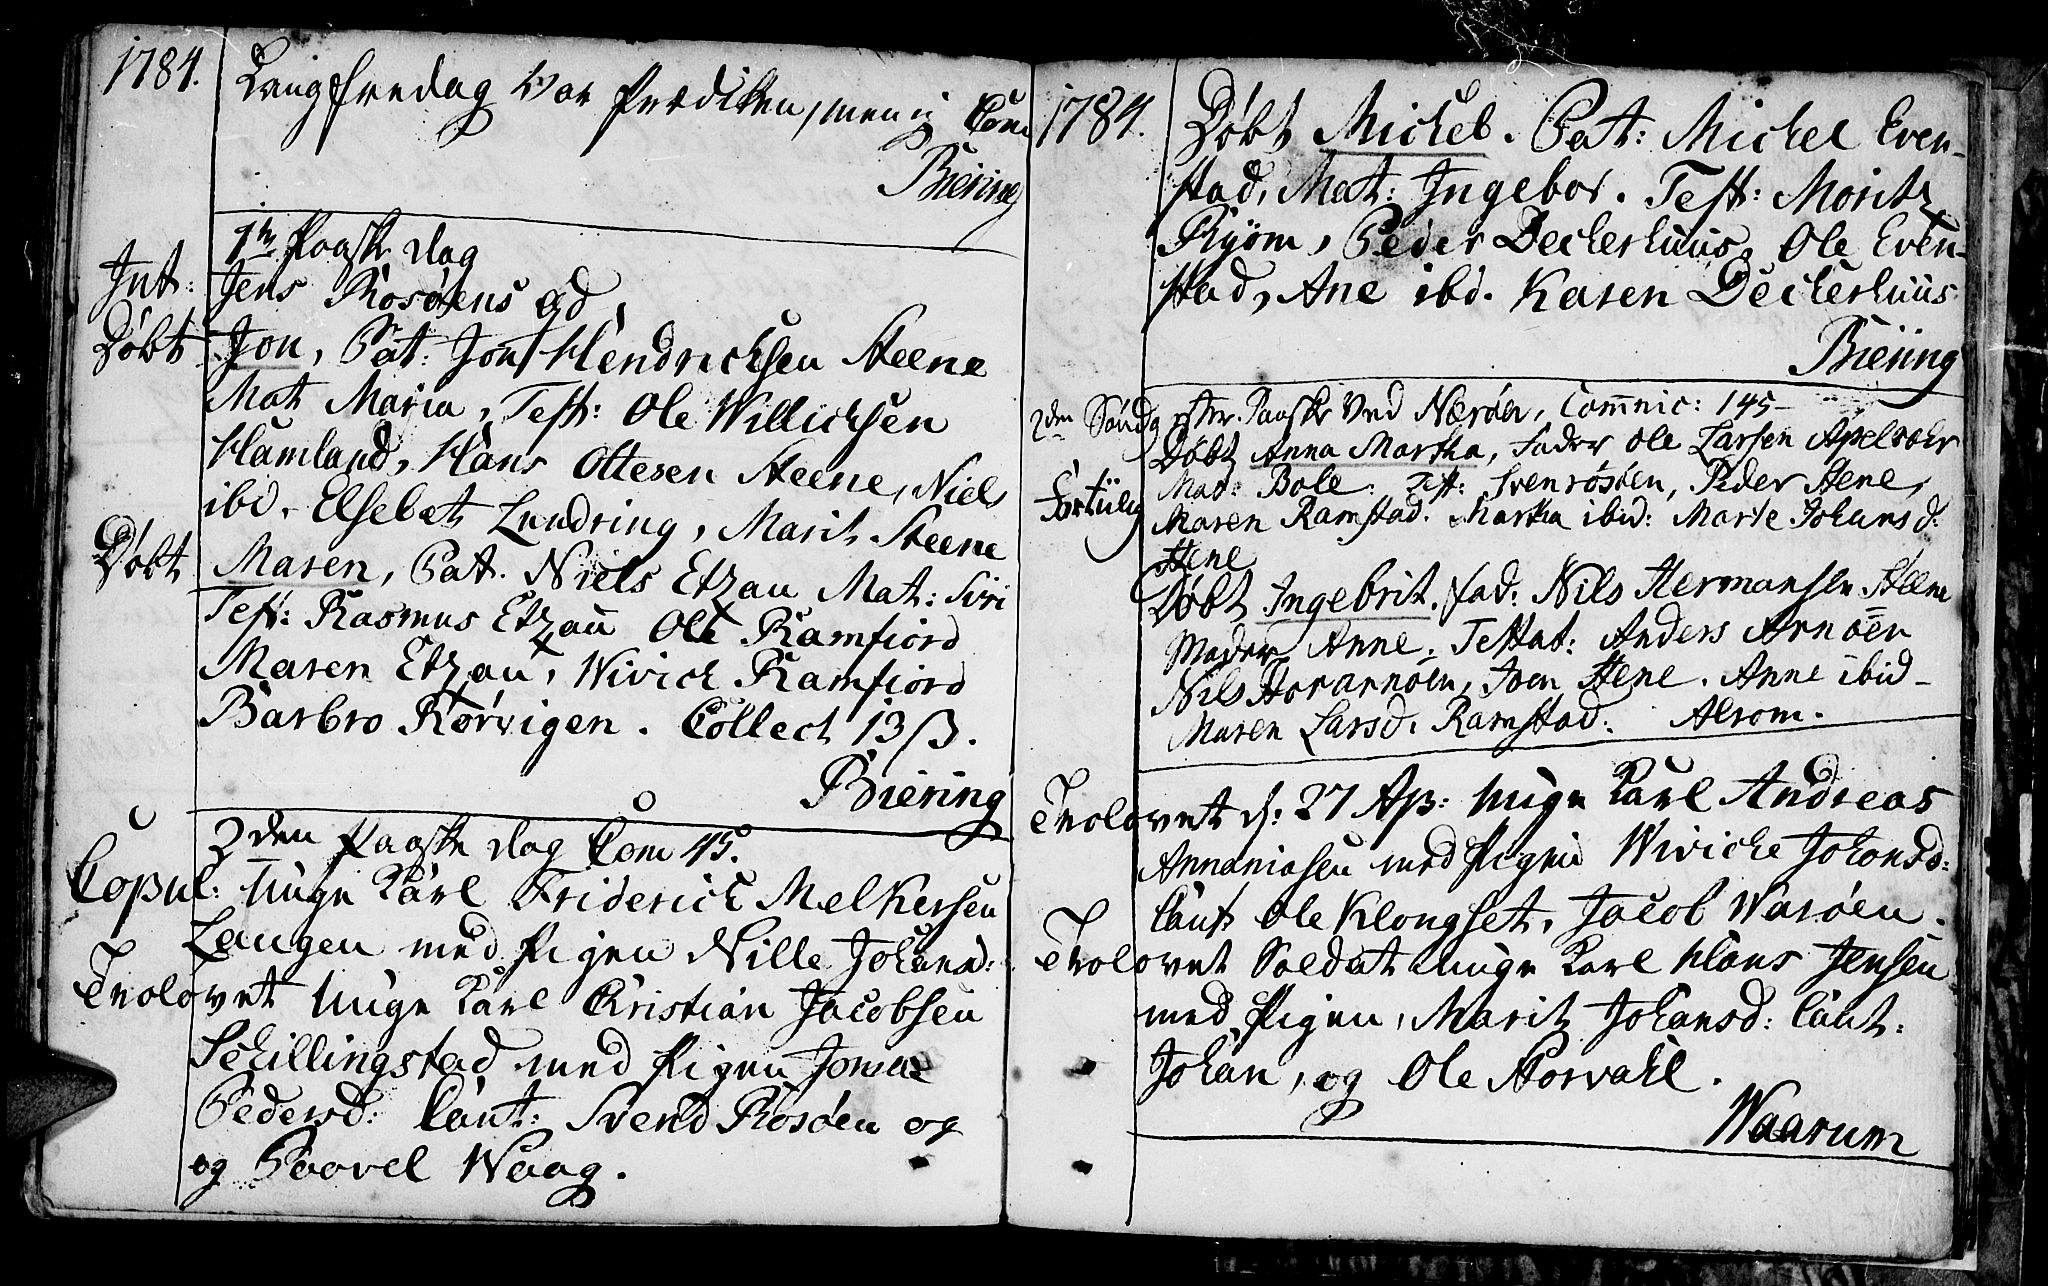 1784.
Langfredag var Prædiken, men ij Com
Biering
1te Paaske dag
Int: Jens Rosøens
Døbt Jon, Pat: Jon Hendrichsen Steene
Mat Maria, Test: Ole Willichsen
Hamland, Hans Ottesen Steene, Niels
ibd. Elsebet Lundring, Marit Steene
Døbt Maren, Pat. Niels Etzau Mat: Siri
Test: Rasmus Etzau Ole Ramfiord
Maren Etzau, Wivich Ramfiord
Barbro Rørvigen. Collect 13 ß.
Biering
2den Paaske dag Com 45.
Copul: unge Karl Friderich Melkersen
Langen med Pigen Nille Johansd:
Trolovet unge Karl Christian Jacobsen
Schillingstad med Pigen
Pedersd: Caut: Svend Rosøen og
og Paavel Waag.
1784.
Døbt Michel. Pat: Michel Even-
stad, Mat: Ingebor. Test: Moritz
Ryøm, Peder Deckerhuus, Ole Even-
stad, Ane ibd. Karen Deckerhuus
Biering
2den Søndg efter Paaske ved Nærøen, Comnic: 145-
Døbt Anna Martha, Fader Ole Larsen Apelvær
Mod: Bole. Test: Svenrøsøen, Peder Stene,
Maren Ramstad. Martha ibid: Marte Johansd:
Stene
Døbt Ingebrit. fad: Nils Hermansen Steene
Moder Anne. Testat: Anders Arnøen
Nils Horarnøen, Joen Stene. Anne ibid-
Maren Larsd. Ramstad.
Trolovet d: 27 Ap: unge Karl Andreas
Annaniasen med Pigen Wiviche Johansd:
Caut Ole Klongset, Jacob Warøen.
Trolovet Soldat unge Karl Hans Jensen
med Pigen, Marit Johansd: Caut:
Johan, og Ole Horvahl.
Waarum